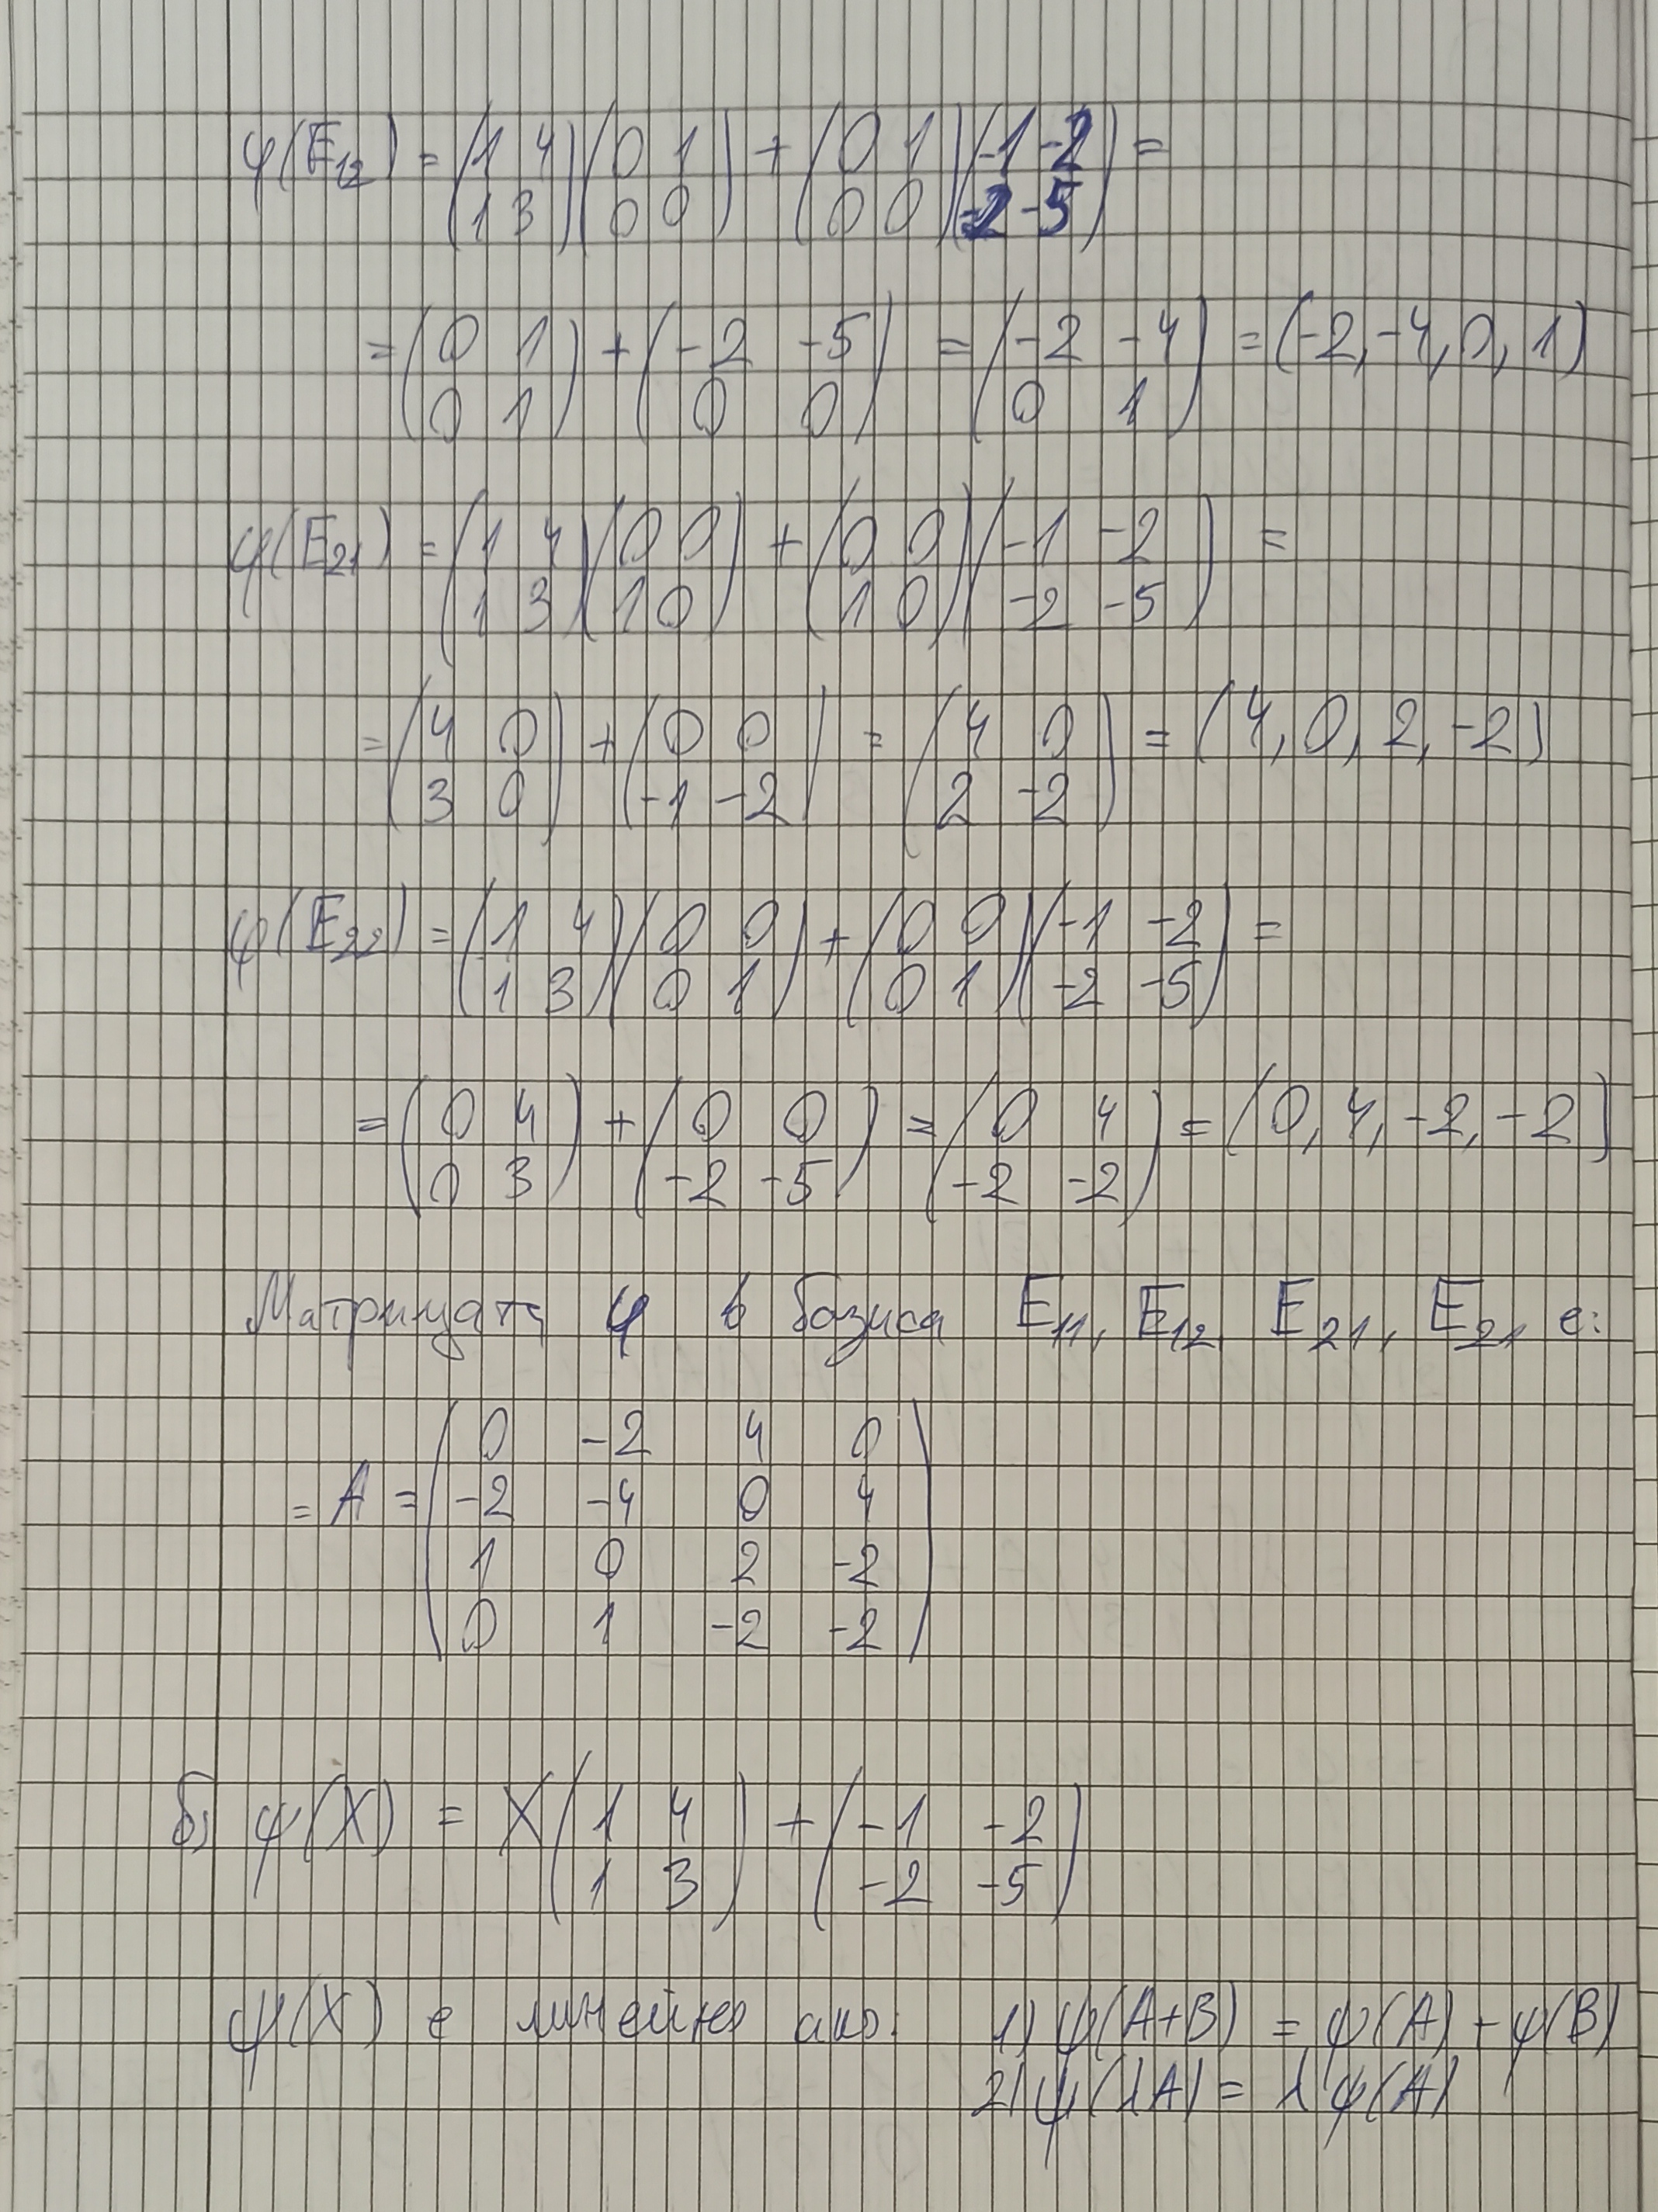 φ(E₁₂) = (1 4; 1 3)(0 1; 0 0) + (0 1; 0 0)(-1 -2; -2 -5) =
= (0 1; 0 1) + (-2 -5; 0 0) = (-2 -4; 0 1) = (-2, -4, 0, 1)
φ(E₂₁) = (1 4; 1 3)(0 0; 1 0) + (0 0; 1 0)(-1 -2; -2 -5) =
= (4 0; 3 0) + (0 0; -1 -2) = (4 0; 2 -2) = (4, 0, 2, -2)
φ(E₂₂) = (1 4; 1 3)(0 0; 0 1) + (0 0; 0 1)(-1 -2; -2 -5) =
= (0 4; 0 3) + (0 0; -2 -5) = (0 4; -2 -2) = (0, 4, -2, -2)
Матрицата φ в базиса E₁₁, E₁₂, E₂₁, E₂₁ е:
= A = (0 -2 4 0; -2 -4 0 4; 1 0 2 -2; 0 1 -2 -2)
б) ψ(X) = X(1 4; 1 3) + (-1 -2; -2 -5)
ψ(X) е линейно ако: 1) ψ(A+B) = ψ(A) + ψ(B)
2) ψ(λA) = λψ(A)